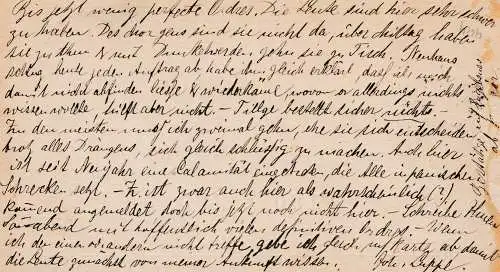 Bis jetzt wenig perfecte Ordres. Die Leute sind hier sehr schwer
zu haben. Des Morgens sind sie nicht da, über Mittag haben
sie zu thun & mit Dunkelwerden gehn sie zu Tisch. Neuhaus
schlug heute jeden Auftrag ab habe ihm gleich erklärt, dass ich mich
damit nicht abfinden liesse & wiederkäme, wovon er allerdings nichts
wissen wollte, hilft aber nicht. – Tillge bestellt sicher nichts.
Zu den meisten muss ich zweimal gehn, ehe sie sich entscheiden
trotz alles Drängens, sich gleich schlüssig zu machen. Auch hier
ist seit Neujahr eine Calamität eingetreten, die Alle in panischen
Schrecken setzt. – Fr. ist zwar auch hier als wahrscheinlich (?)
kommend angemeldet doch bis jetzt noch nicht hier. – Schreibe Ihnen
abend mit hoffentlich vielen definitiven Ordres. Wenn
ich den einen od. andern nicht treffe, gebe ich gleich auf Karte ab damit
die Leute zunächst von meiner Ankunft wissen.